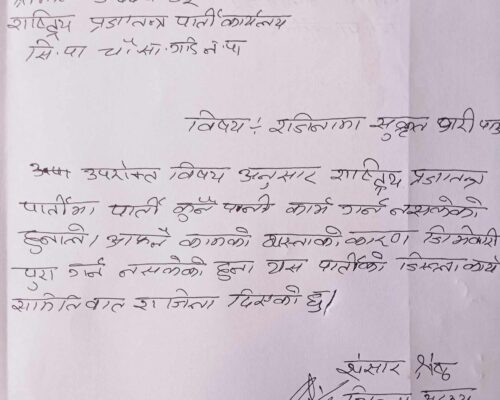 राष्ट्रिय प्रजातन्त्र पार्ती कार्यलय
सि.पा चौ.सा.गडि न.पा
विषय:- राजिनामा सुकृत बारी
उपरोक्त विषय अनुसार राष्ट्रिय प्रजातन्त्र
पार्तीमा पार्ती कुनै पनि काम गर्न नसकेको
हुनाले। आफ्नै कामको ब्यस्ताको कारण जिमेवारी
पुरा गर्न नसकेको हुना यस पार्तीको जिल्ला कार्य
समितिबाट राजिना दिएको छु।
संसार श्रेष्ठ
जिल्ला सदस्य